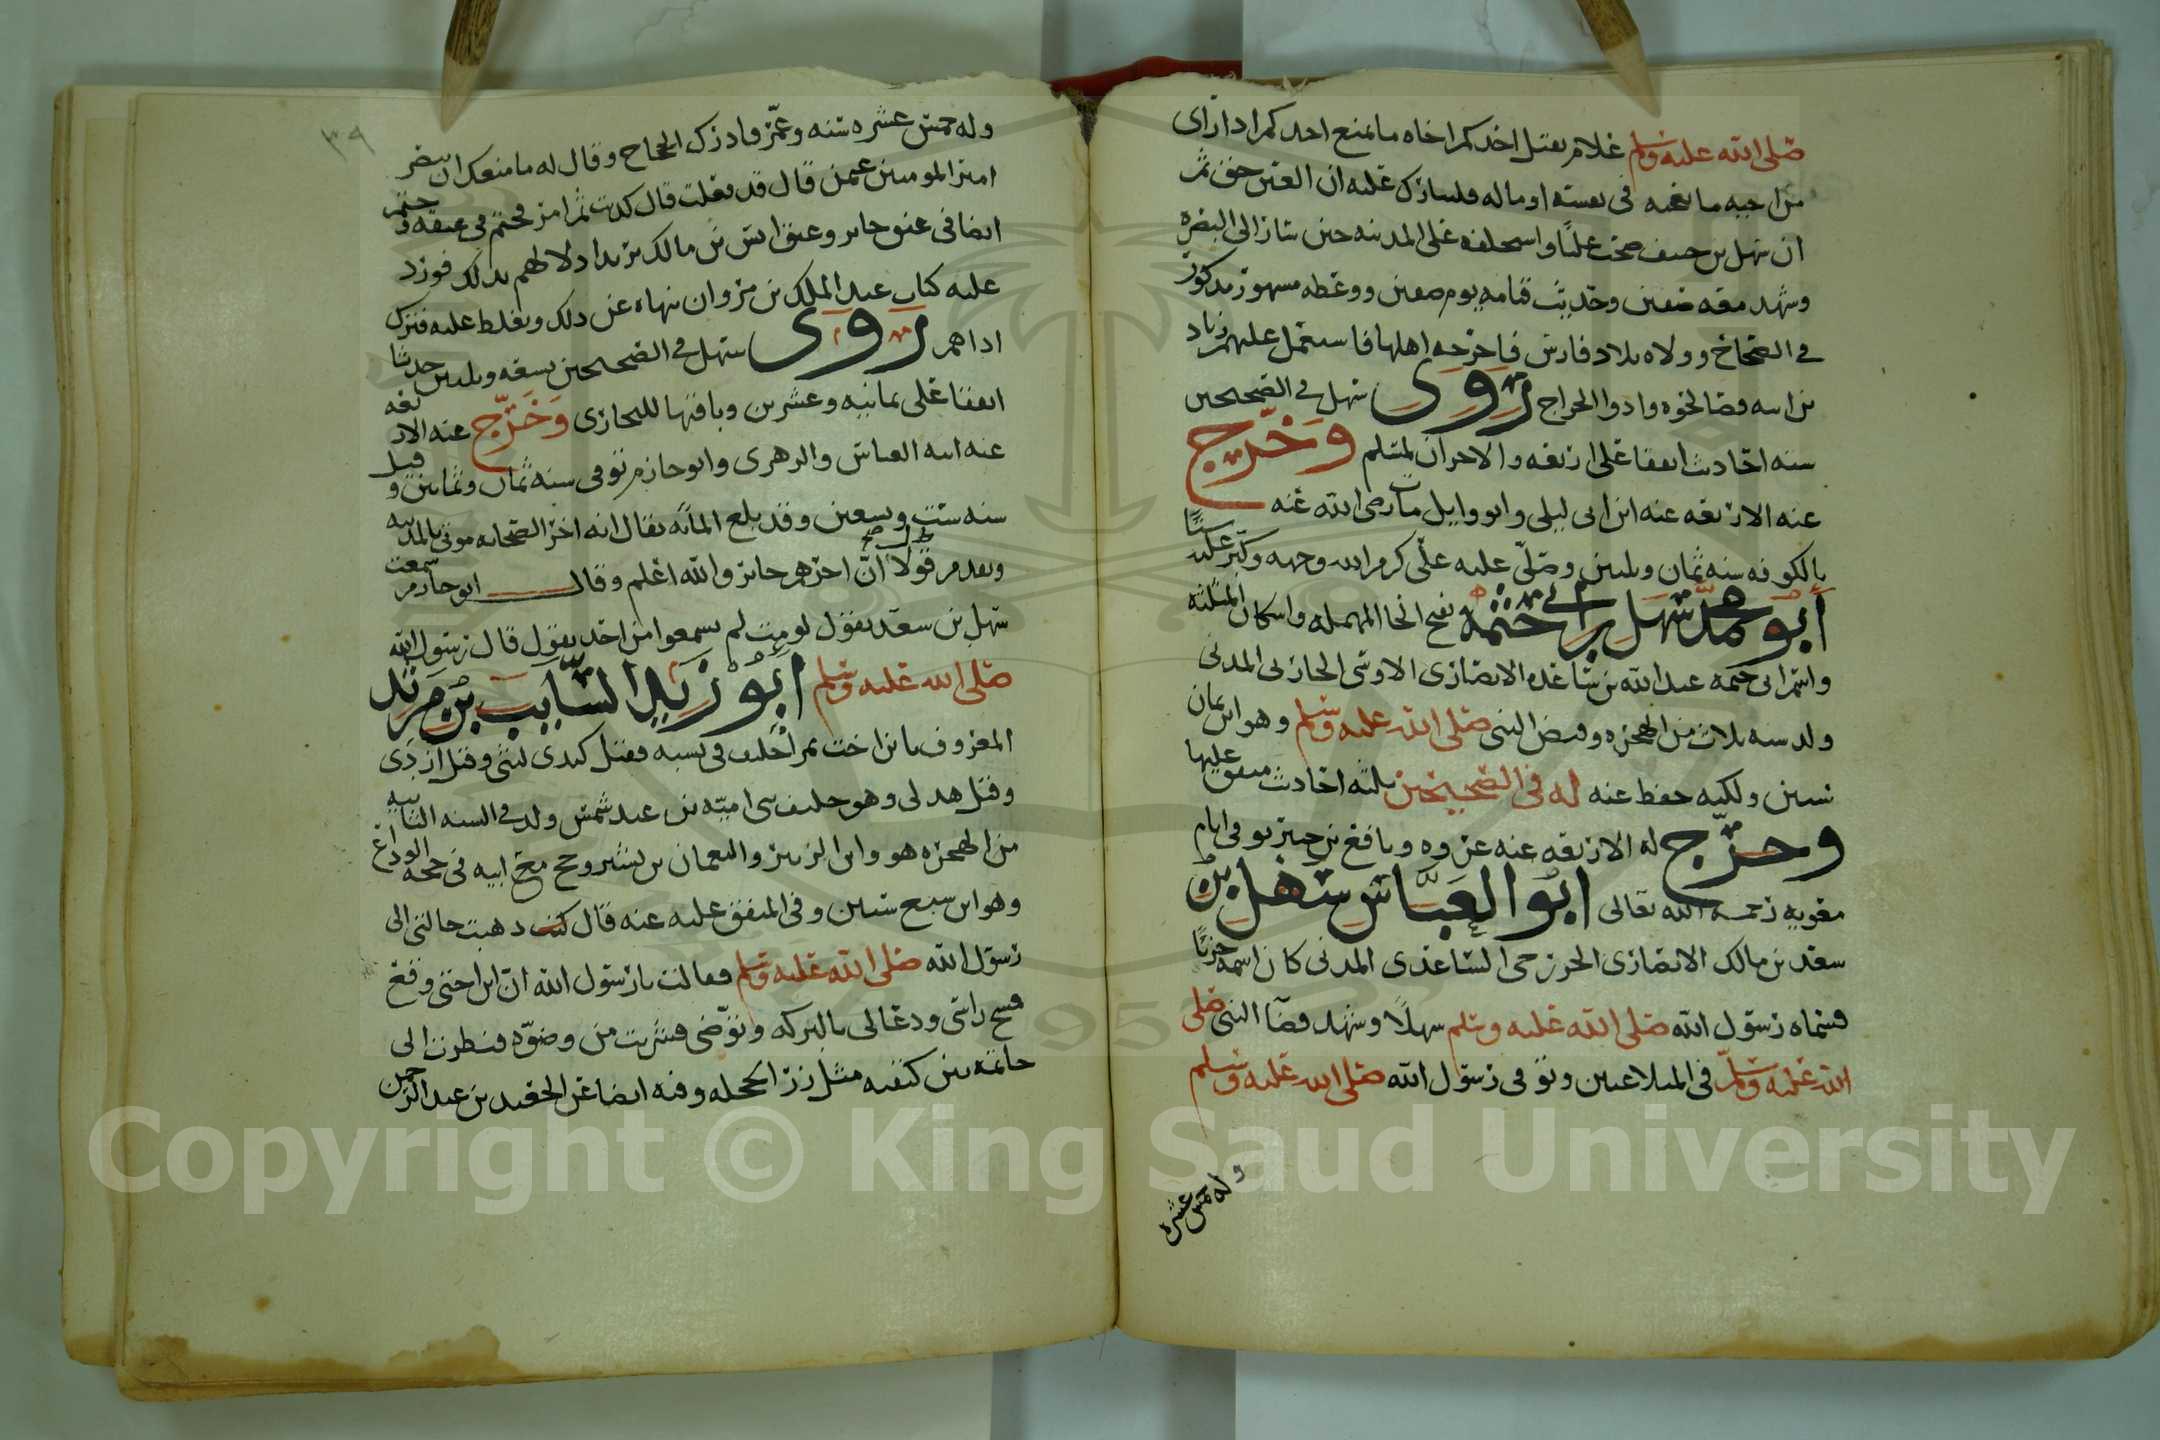 صلى الله عليه وسلم غلام يقتل احدكم اخاه ما يمنع احدكم اذا راى
من اخيه ما يعجبه في نفسه او ماله فليبارك عليه ان العين حق ثم
ان سهل بن حنيف صحب عليا واستخلفه على المدينه حين سار الى البصره
وشهد معه صفين وحديث قيامه يوم صفين ووعظه مشهور مذكور
في الصحاح وولاه بلاد فارس فاخرجه اهلها فاستعمل عليهم زياد
بن ابيه فصالحوه وادوا الخراج روى سهل في الصحيحين
سته احاديث اتفقا على اربعه والاخران لمسلم وخرج
عنه الاربعه عنه ابن ابي ليلى وابو وايل مات رضي الله عنه
بالكوفه سنه ثمان وثلثين وصلى عليه علي كرم الله وجهه وكبر عليه ستا
ابو محمد سهل بن ابي حثمة بفتح الحا المهمله واسكان المثلثه
واسم ابي حثمه عبد الله بن ساعده الانصاري الاوسي الحارثي المدني
ولد سنه ثلاث من الهجره وقبض النبي صلى الله عليه وسلم وهو ابن ثمان
سنين ولكنه حفظ عنه له في الصحيحين ثلثه احاديث متفق عليها
وخرج له الاربعه عنه عروه ونافع بن جبير توفي ايام
معويه رحمه الله تعالى ابو العباس سهل بن
سعد بن مالك الانصاري الخزرجي الساعدي المدني كان اسمه حزنا
فسماه رسول الله صلى الله عليه وسلم سهلا وشهد قضا النبي صلى
الله عليه وسلم في المتلاعنين وتوفي رسول الله صلى الله عليه وسلم
وله خمس عشره
٣٩
وله خمس عشره سنه وعمر وادرك الحجاج وقال له ما منعك ان تنصر
امير المومنين عثمن قال قد فعلت قال كذبت ثم امر فختم في عنقه وختم
ايضا في عنق جابر وعنق انس بن مالك يريد اذلالهم بذلك فورد
عليه كتاب عبد الملك بن مروان ينهاه عن ذلك ويغلظ عليه فترك
اذاهم روى سهل في الصحيحين تسعه وثلثين حديثا
اتفقا على ثمانيه وعشرين وباقيها للبخاري وخرج عنه الاربعه
عنه ابنه العباس والزهري وابو حازم توفي سنه ثمان وثمانين وقيل
سنه ست وتسعين وقد بلغ المائه يقال انه اخر الصحابه موتا بالمدينه
وتقدم قولا ان اخرهم جابر والله اعلم وقال ابو حازم سمعت
سهل بن سعد يقول لو مت لم تسمعوا من احد يقول قال رسول الله
صلى الله عليه وسلم ابو زيد السايب بن يزيد
المعروف بابن اخت نمر اختلف في نسبه فقيل كندي ليثي وقيل ازدي
وقيل هذلي وهو حليف بني اميه بن عبد شمس ولد في السنه الثانيه
من الهجره هو وابن الزبير والنعمان بن بشير وحج مع ابيه في حجه الوداع
وهو ابن سبع سنين وفي المتفق عليه عنه قال كنت ذهبت خالتي الى
رسول الله صلى الله عليه وسلم فقالت يا رسول الله ان ابن اختي وقع
فمسح راسي ودعا لي بالبركه وتوضى فشربت من وضوه فنظرت الى
خاتمه بين كتفيه مثل زر الحجله وفيه ايضا عن الجعيد بن عبد الرحمن
Copyright © King Saud University
1957